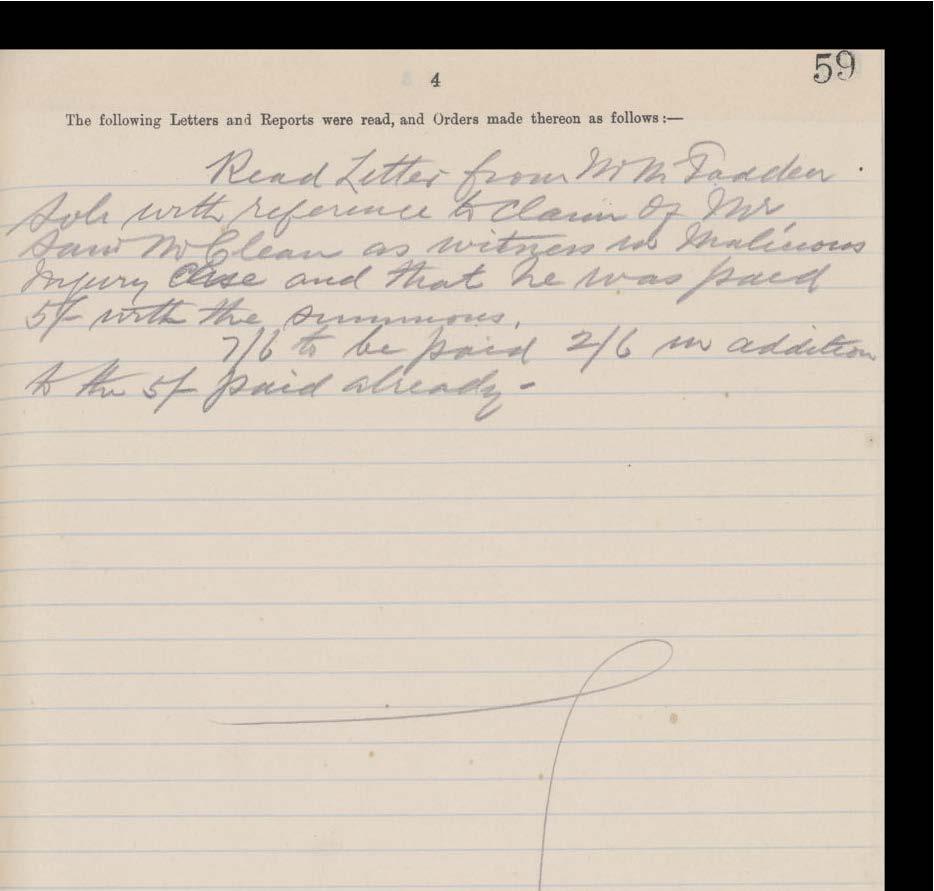 59
4
The following Letters and Reports were read, and Orders made thereon as follows:—
Read Letter from Mr McFadden
Solr with reference to Claim of Mr
Saml McClean as witness in Malicious
Injury Case and that he was paid
5/- with the summons.
7/6 to be paid 2/6 in addition
to the 5/- paid already -